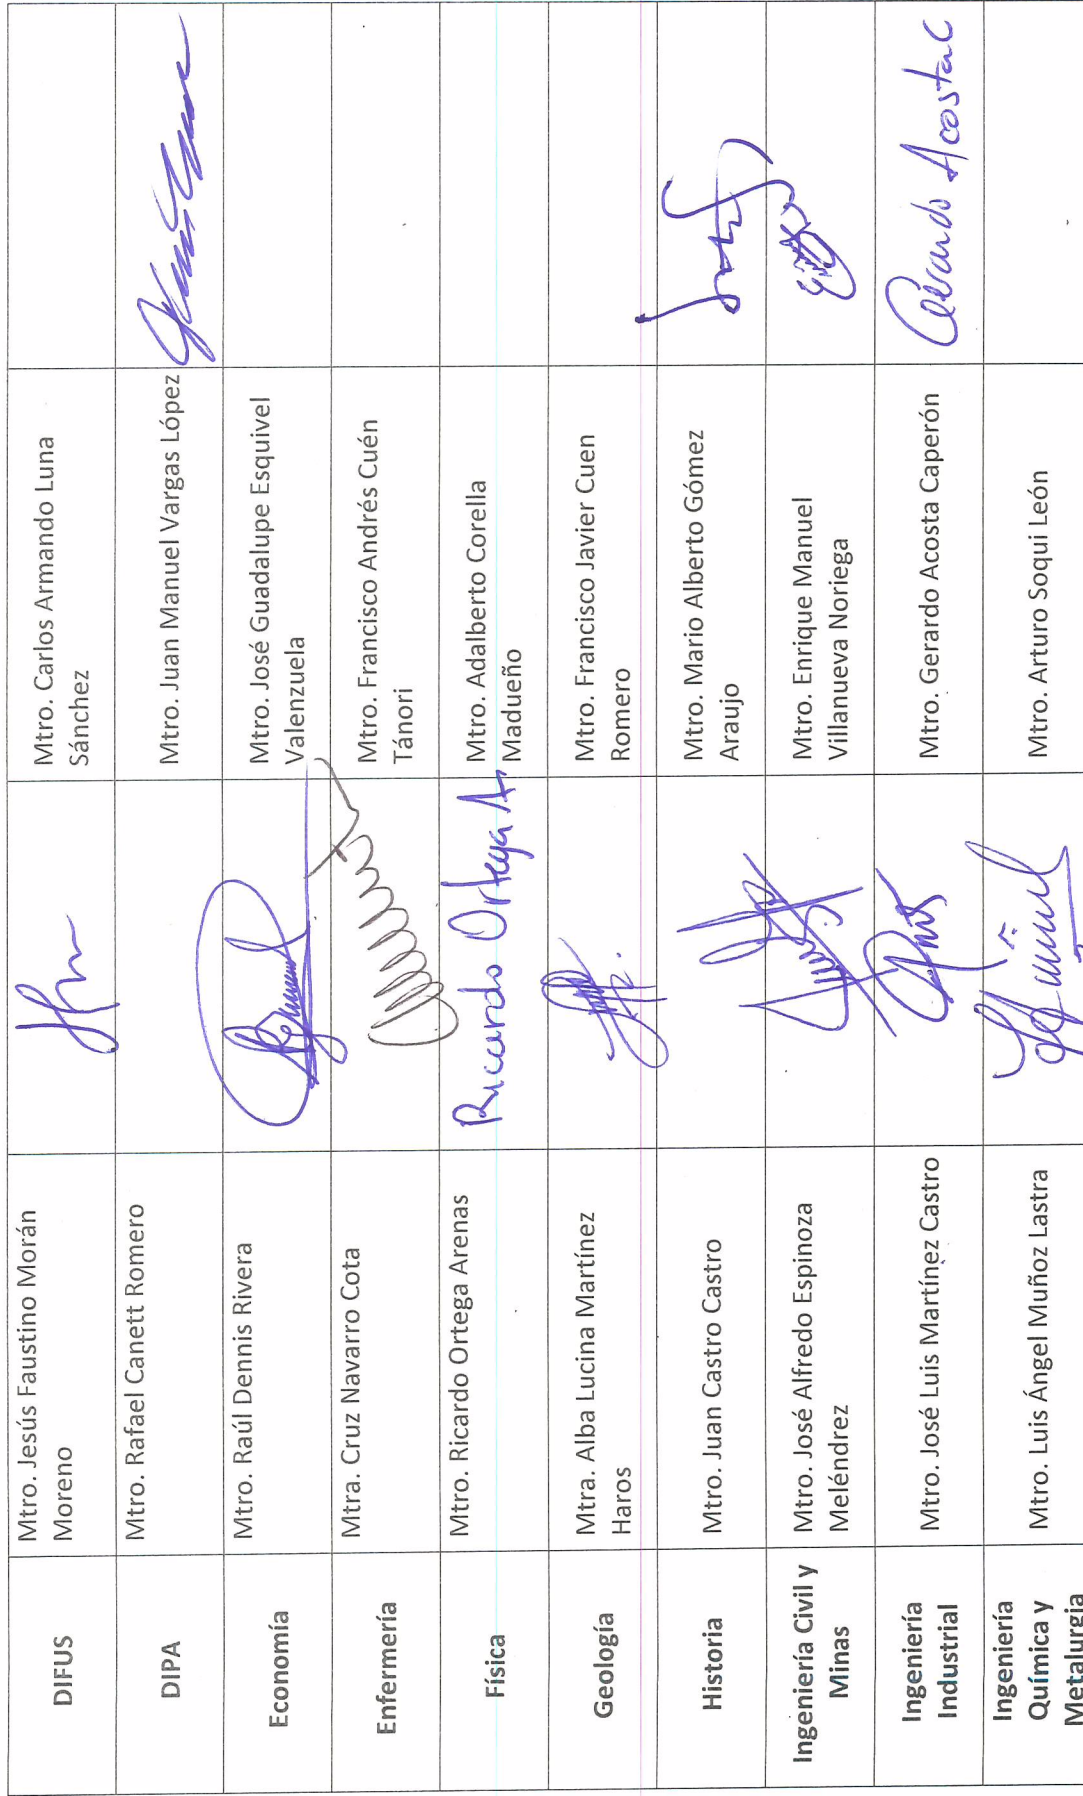 DIFUS
Mtro. Jesús Faustino Morán
Moreno
Mtro. Carlos Armando Luna
Sánchez
DIPA
Mtro. Rafael Canett Romero
Mtro. Juan Manuel Vargas López
Economía
Mtro. Raúl Dennis Rivera
Mtro. José Guadalupe Esquivel
Valenzuela
Enfermería
Mtra. Cruz Navarro Cota
Mtro. Francisco Andrés Cuén
Tánori
Física
Mtro. Ricardo Ortega Arenas
Ricardo Ortega A
Mtro. Adalberto Corella
Madueño
Geología
Mtra. Alba Lucina Martínez
Haros
Mtro. Francisco Javier Cuen
Romero
Historia
Mtro. Juan Castro Castro
Mtro. Mario Alberto Gómez
Araujo
Ingeniería Civil y
Minas
Mtro. José Alfredo Espinoza
Meléndrez
Mtro. Enrique Manuel
Villanueva Noriega
Ingeniería
Industrial
Mtro. José Luis Martínez Castro
Mtro. Gerardo Acosta Caperón
Acosta C
Ingeniería
Química y
Metalurgia
Mtro. Luis Ángel Muñoz Lastra
Mtro. Arturo Soqui León